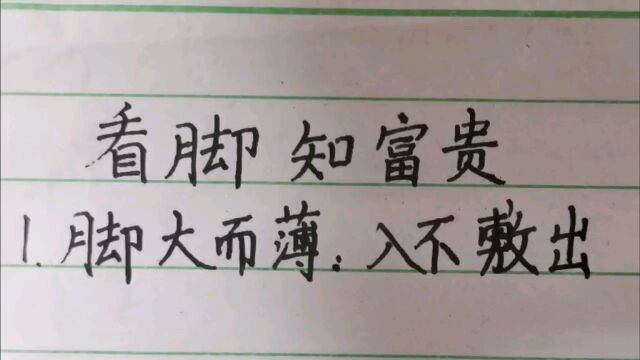 看脚知富贵
1.脚大而薄:入不敷出